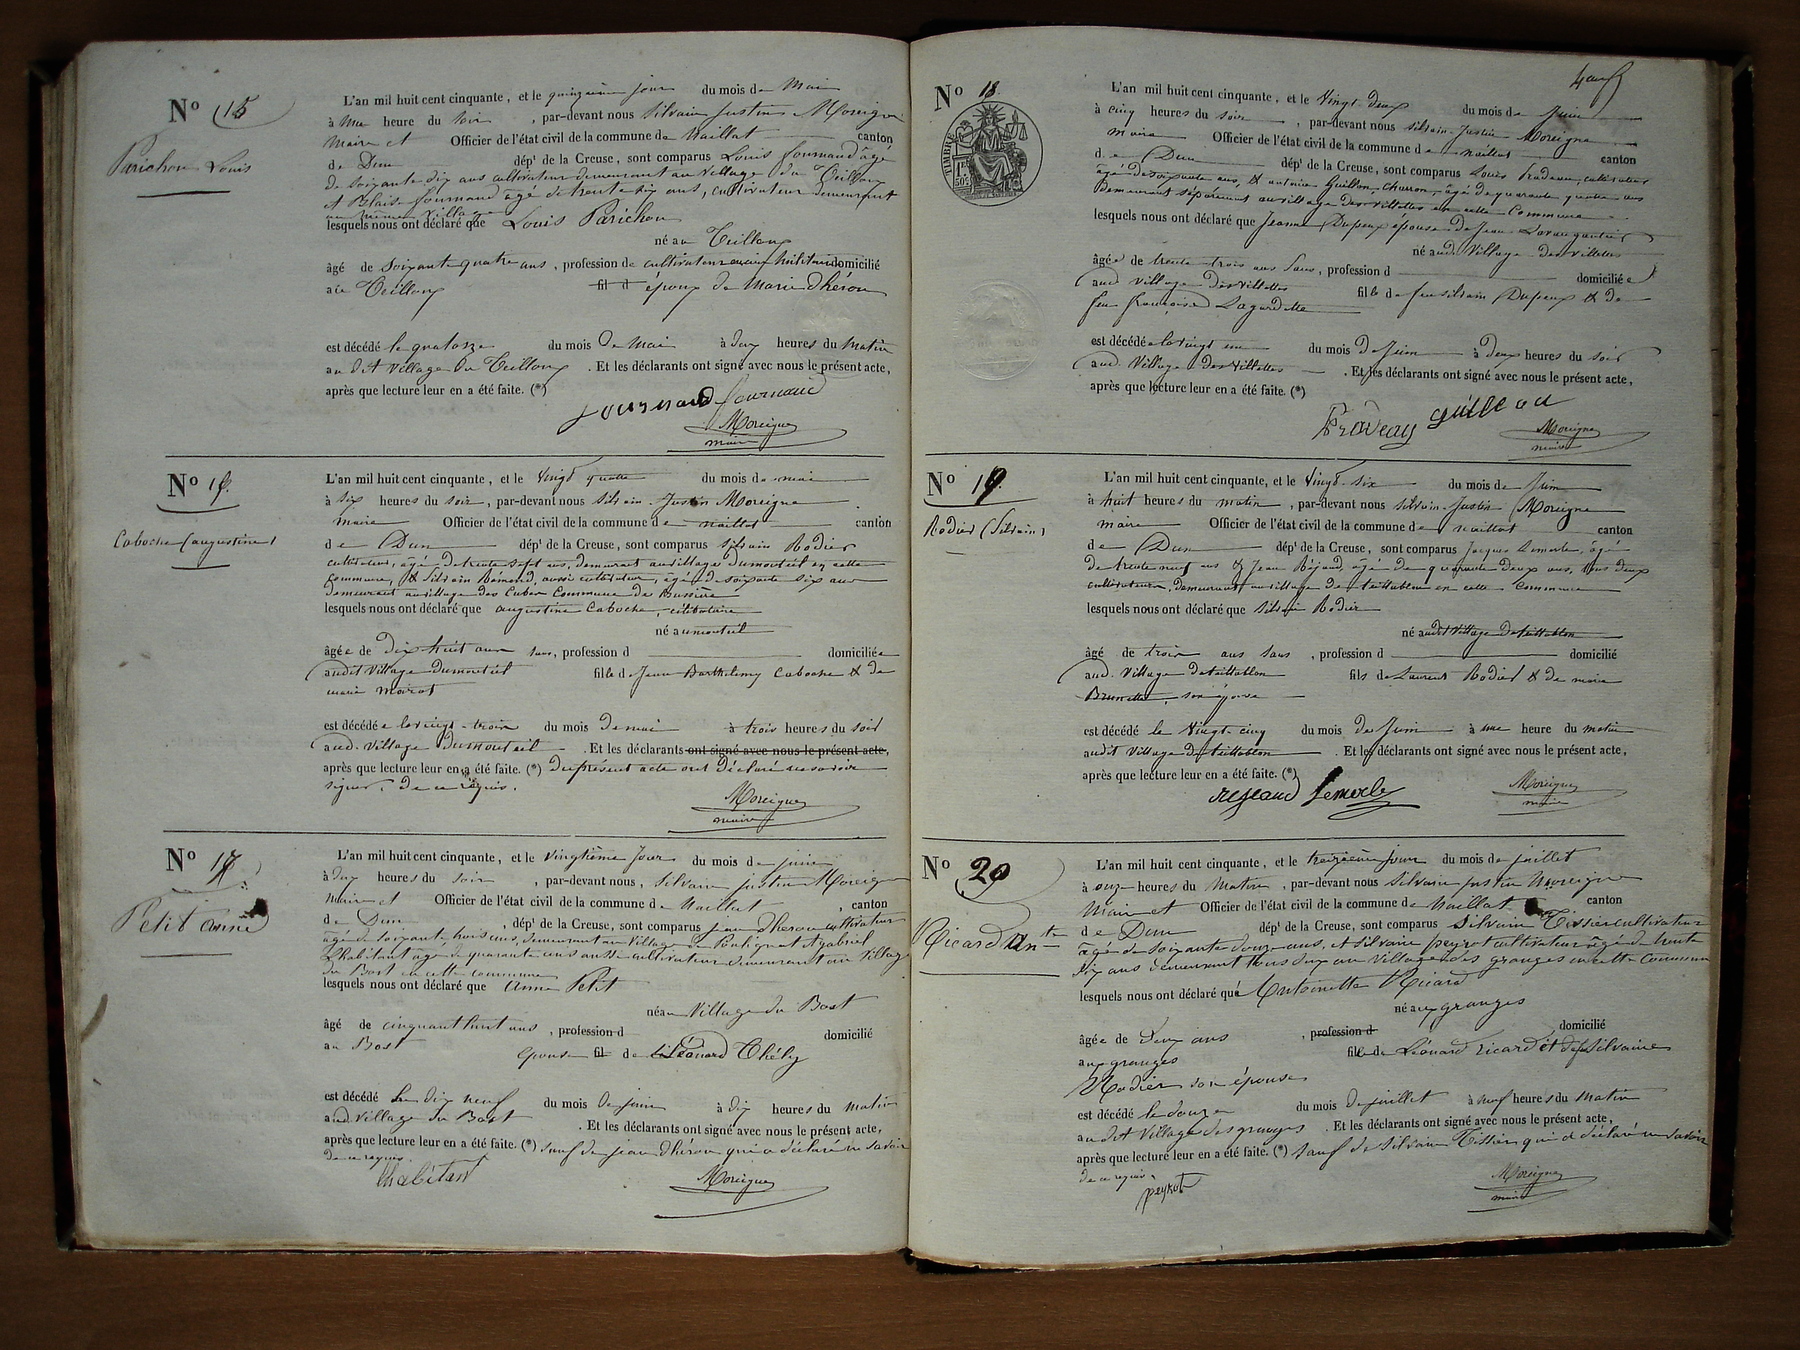 No 15
Parichon Louis
L'an mil huit cent cinquante, et le quinzième jour du mois de Mai
à une heure du soir, par-devant nous Silvain Justin Moreigne
Maire et Officier de l'état civil de la commune de Naillat canton
de Dun dépt de la Creuse, sont comparus Louis fournaud âgé
de soixante dix ans cultivateur demeurant au village du Teilloux
et Blaise fournaud âgé de trente six ans, cultivateur demeurant
au même village
lesquels nous ont déclaré que Louis Parichon
né au Teilloux
âgé de soixante quatre ans, profession de cultivateur ancien militaire domicilié
au Teilloux fil d époux de Marie Dhérou
est décédé le quatorze du mois de Mai à dix heures du matin
au dit Village du Teilloux. Et les déclarants ont signé avec nous le présent acte,
après que lecture leur en a été faite. (*)
fournaud fournaud
Moreigne
maire
No 16
Caboche (augustine)
L'an mil huit cent cinquante, et le vingt quatre du mois de mai
à six heures du soir, par-devant nous Silvain Justin Moreigne
maire Officier de l'état civil de la commune de naillat canton
de Dun dépt de la Creuse, sont comparus Silvain Rodier
cultivateur, âgé de trente sept ans, demeurant au village Dumonteil en cette
commune, & Silvain Bémond, aussi cultivateur, âgé de soixante six ans
demeurant au village des Commune de Bussière
lesquels nous ont déclaré que augustine Caboche, célibataire
né au monteil
âgée de dix huit ans, profession d domiciliée
audit village dumonteil fille de Jean Barthelemy Caboche & de
marie marot
est décédée le vingt-trois du mois de mai à trois heures du soir
aud. village Dumonteil. Et les déclarants ont signé avec nous le présent acte,
après que lecture leur en a été faite. (*) du présent acte ont déclaré ne savoir
signer, de ce requis.
Moreigne
maire
No 17
Petit anne
L'an mil huit cent cinquante, et le vingtième jour du mois de juin
à dix heures du soir, par-devant nous, Silvain justin Moreigne
Maire et Officier de l'état civil de la commune de Naillat, canton
de Dun, dépt de la Creuse, sont comparus jean dhérou cultivateur
âgé de soixante trois ans, demeurant au Village de et gabriel
Lhabitant âgé de quarante ans aussi cultivateur demeurant au Village
du Bost en cette commune
lesquels nous ont déclaré que anne Petit
né au Village du Bost
âgé de cinquante huit ans, profession d domicilié
au Bost épouse fil de Léonard Thély
est décédé le dix neuf du mois de juin à dix heures du matin
aud. Village du Bost. Et les déclarants ont signé avec nous le présent acte,
après que lecture leur en a été faite. (*) sauf de jean dhérou qui a déclaré ne savoir
de ce requis.
Lhabitant
Moreigne
No 18
TIMBRE
L'an mil huit cent cinquante, et le vingt deux du mois de Juin
à cinq heures du soir, par-devant nous Silvain-Justin Moreigne
maire Officier de l'état civil de la commune de naillat canton
de Dun dépt de la Creuse, sont comparus Louis Pradeau, cultivateur
âgé de soixante ans, & antoine Guillon, charron, âgé de quarante quatre ans
Demeurant séparément au village des villettes en cette Commune
lesquels nous ont déclaré que Jeanne Dupeux épouse de Jean
né aud. Village des villettes
âgée de trente-trois ans, profession d domiciliée
aud village des villettes fille de feu silvain Dupeux & de
feu françoise Lagardette
est décédée le vingt un du mois de Juin à deux heures du soir
aud. Village des Villettes. Et les déclarants ont signé avec nous le présent acte,
après que lecture leur en a été faite. (*)
Pradeau guilleau
Moreigne
maire
No 19
Rodier (Silvain)
L'an mil huit cent cinquante, et le Vingt-six du mois de Juin
à huit heures du matin, par-devant nous Silvain-Justin Moreigne
maire Officier de l'état civil de la commune de naillat canton
de Dun dépt de la Creuse, sont comparus Jacques Lemerle, âgé
de trente neuf ans & Jean Réjaud, âgé de quarante deux ans, tous deux
cultivateurs, demeurant au village de en cette Commune
lesquels nous ont déclaré que Silvain Rodier
né audit village
âgé de trois ans, profession d domicilié
aud. Village fils de Laurent Rodier & de marie
Brunette, son épouse
est décédé le Vingt-cinq du mois de Juin à une heure du matin
audit village. Et les déclarants ont signé avec nous le présent acte,
après que lecture leur en a été faite. (*)
rejeaud Lemerle
Moreigne
maire
No 20
Ricard Ante
L'an mil huit cent cinquante, et le treizième jour du mois de juillet
à onze heures du Matin, par-devant nous Silvain justin Moreigne
Maire et Officier de l'état civil de la commune de Naillat canton
de Dun dépt de la Creuse, sont comparus Silvain Tissier cultivateur
âgé de soixante douze ans, et silvain peyrot cultivateur âgé de trente
six ans demeurant tous deux au village des granges en cette commune
lesquels nous ont déclaré que Antoinette Ricard
né aux granges
âgée de deux ans, profession d domicilié
aux granges fille de Léonard ricard et de Silvaine
Rodier son épouse
est décédé le douze du mois de juillet à neuf heures du matin
au dit Village des granges. Et les déclarants ont signé avec nous le présent acte,
après que lecture leur en a été faite. (*) sauf de silvain Tissier qui a déclaré ne savoir
de ce requis.
peyrot
Moreigne
maire